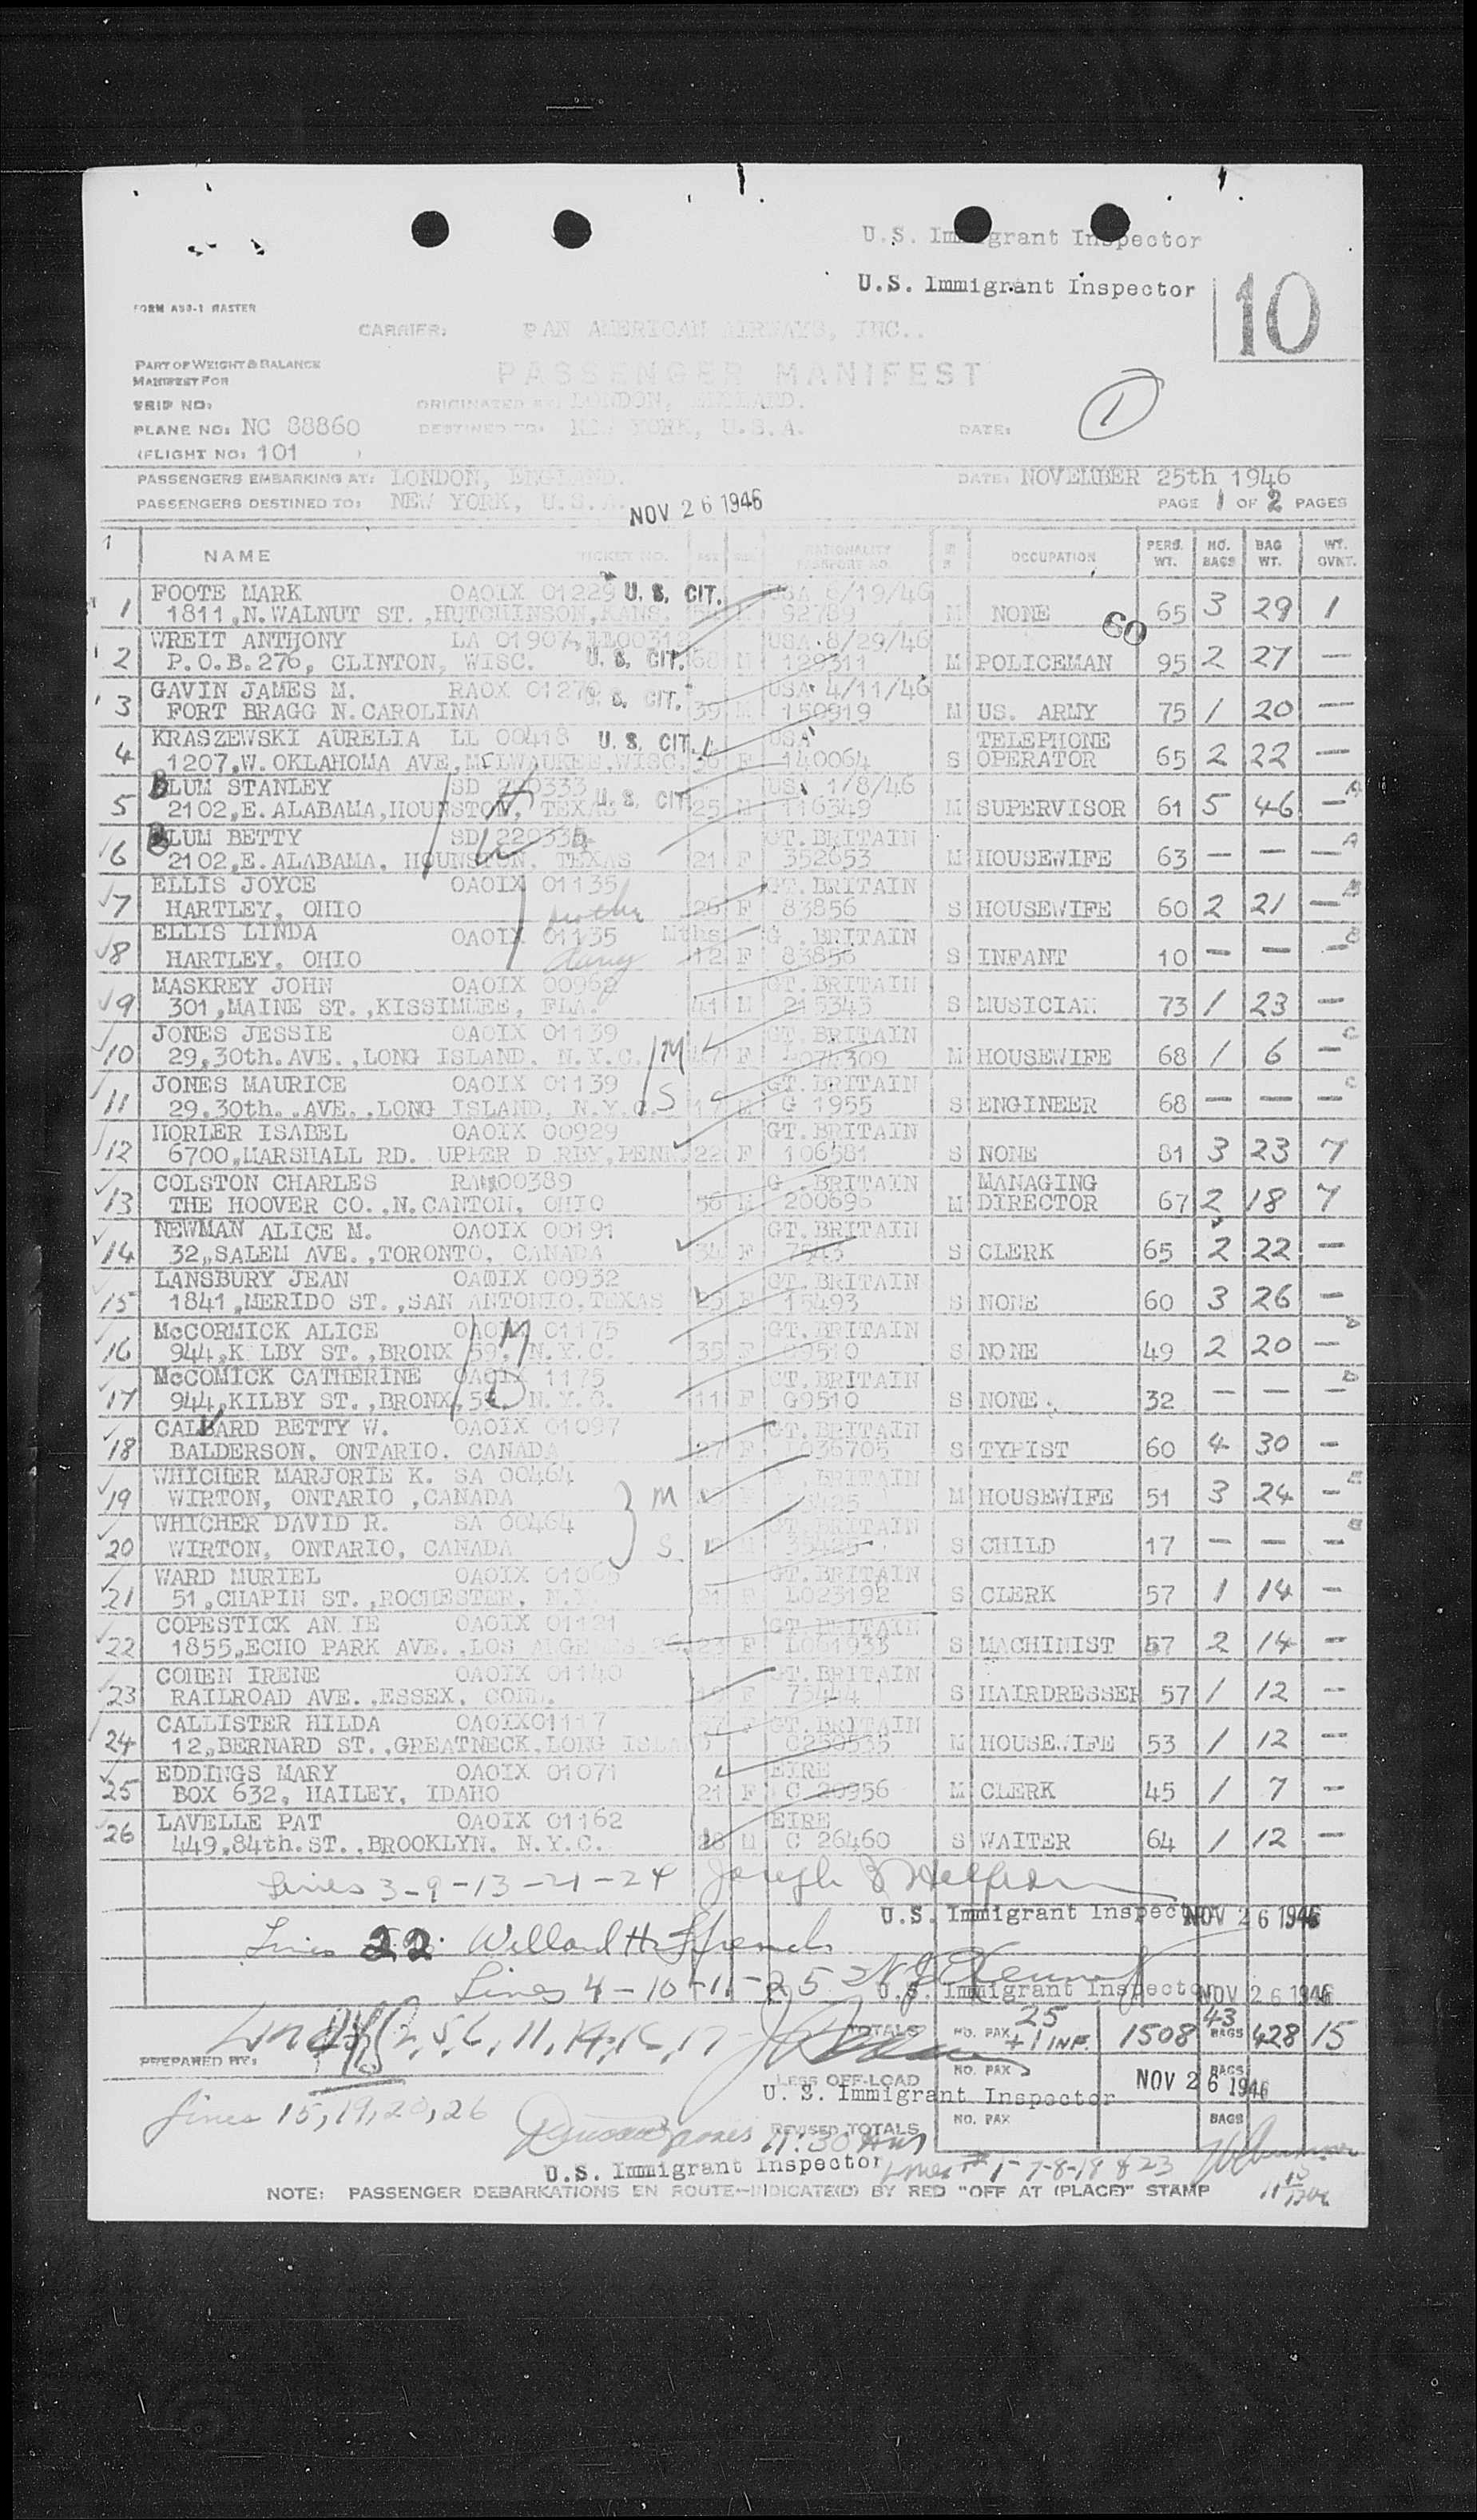 U.S. Immigrant Inspector
U.S. Immigrant Inspector
10
FORM A90-1 MASTER
CARRIER: PAN AMERICAN AIRWAYS, INC..
PART OF WEIGHT & BALANCE
MANIFEST FOR
PASSENGER MANIFEST
1
TRIP NO:
ORIGINATED AT: LONDON, ENGLAND.
PLANE NO: NC 88860
DESTINED TO: NEW YORK, U.S.A.
DATE:
(FLIGHT NO: 101 )
PASSENGERS EMBARKING AT: LONDON, ENGLAND. DATE: NOVEMBER 25th 1946
PASSENGERS DESTINED TO: NEW YORK, U.S.A. NOV 26 1946 PAGE 1 OF 2 PAGES
1 NAME TICKET NO. AGE SEX NATIONALITY PASSPORT NO. OCCUPATION PERS. WT. NO. BAGS BAG WT. WT. OVWT.
1 FOOTE MARK OAOIX 01229 U. S. CIT. USA 8/19/46
1811,N.WALNUT ST.,HUTCHINSON,KANS. 92789 M NONE 65 3 29 1
60
2 WREIT ANTHONY LA 01907, USA 8/29/46
P.O.B.276, CLINTON, WISC. U. S. CIT. 60 M 129311 M POLICEMAN 95 2 27 —
3 GAVIN JAMES M. RAOX 0127 U. S. CIT. USA 4/11/46
FORT BRAGG N.CAROLINA 39 M 150919 M US. ARMY 75 1 20 —
4 KRASZEWSKI AURELIA LL 00418 U. S. CIT. USA TELEPHONE
1207,W.OKLAHOMA AVE,MILWAUKEE,WISC. 36 F 140064 S OPERATOR 65 2 22 —
5 BLUM STANLEY SD 220333 U. S. CIT. USA 1/8/46
2102,E.ALABAMA,HOUNSTON, TEXAS 25 M 116349 M SUPERVISOR 61 5 46 — A
6 BLUM BETTY SD 220334 GT.BRITAIN
2102,E.ALABAMA, HOUNSTON, TEXAS 21 F 352653 M HOUSEWIFE 63 — — — A
7 ELLIS JOYCE OAOIX 01135 GT.BRITAIN
HARTLEY, OHIO mother 26 F 83856 S HOUSEWIFE 60 2 21 — B
8 ELLIS LINDA OAOIX 01135 Mths G .BRITAIN
HARTLEY, OHIO 12 F 83856 S INFANT 10 — — — B
9 MASKREY JOHN OAOIX 00962 GT.BRITAIN
301,MAINE ST.,KISSIMMEE, FLA. 41 M 215345 S MUSICIAN 73 1 23 —
10 JONES JESSIE OAOIX 01139 M GT.BRITAIN
29,30th.AVE.,LONG ISLAND, N.Y.C. 47 F M HOUSEWIFE 68 1 6 — C
11 JONES MAURICE OAOIX 01139 S GT.BRITAIN
29,30th..AVE.,LONG ISLAND, N.Y.C. 17 M G 1955 S ENGINEER 68 — — — C
12 HORLER ISABEL OAOIX 00929 GT.BRITAIN
6700,MARSHALL RD. UPPER D RBY,PENN. 22 F 106581 S NONE 81 3 23 7
13 COLSTON CHARLES 00389 G .BRITAIN MANAGING
THE HOOVER CO.,N.CANTON, OHIO 56 M 200696 M DIRECTOR 67 2 18 7
14 NEWMAN ALICE M. OAOIX 00191 GT.BRITAIN
32,SALEM AVE.,TORONTO, CANADA 34 F S CLERK 65 2 22 —
15 LANSBURY JEAN OAOIX 00932 GT.BRITAIN
1841,MERIDO ST.,SAN ANTONIO,TEXAS F 15493 S NONE 60 3 26 —
16 McCORMICK ALICE 01175 M GT.BRITAIN
944,K LBY ST.,BRONX 59, N.Y.C. 35 F G9510 S NONE 49 2 20 — D
17 McCOMICK CATHERINE OAOIX 1175 D GT.BRITAIN
944,KILBY ST.,BRONX, N.Y.C. 11 F G9510 S NONE. 32 — — — D
18 CALBARD BETTY W. OAOIX 01097 GT.BRITAIN
BALDERSON, ONTARIO. CANADA 27 F L036705 S TYPIST 60 4 30 —
19 WHICHER MARJORIE K. SA 00464 .BRITAIN
WIRTON, ONTARIO ,CANADA M F 35425 M HOUSEWIFE 51 3 24 — E
20 WHICHER DAVID R. SA 00464 GT.BRITAIN
WIRTON, ONTARIO, CANADA S M 35425 S CHILD 17 — — — E
21 WARD MURIEL OAOIX GT.BRITAIN
51,CHAPIN ST.,ROCHESTER, N.Y. F L023192 S CLERK 57 1 14 —
22 COPESTICK AN IE OAOIX 01121 GT BRITAIN
1855,ECHO PARK AVE.,LOS ANGELES 26, 23 F L061933 S MACHINIST 57 2 14 —
23 COHEN IRENE OAOIX 01140 GT.BRITAIN
RAILROAD AVE.,ESSEX, CONN. F S HAIRDRESSER 57 1 12 —
24 CALLISTER HILDA OAOIX01117 GT.BRITAIN
12,BERNARD ST.,GREATNECK,LONG ISLA C250535 M HOUSEWIFE 53 1 12 —
25 EDDINGS MARY OAOIX 01071 EIRE
BOX 632, HAILEY, IDAHO 21 F C 20956 M CLERK 45 1 7 —
26 LAVELLE PAT OAOIX 01162 EIRE
449,84th.ST.,BROOKLYN, N.Y.C. 28 M C 26460 S WAITER 64 1 12 —
Lines 3-9-13-21-24 Joseph
U.S. Immigrant Inspector NOV 26 1946
Lines 22 Willard H. French
Lines 4-10-11-25
U.S. Immigrant Inspector NOV 26 1946
Lines 2, 5, 6, 11, 14, 16, 17
TOTALS NO. PAX 25 +1 INF. 1508 43 BAGS 428 15
PREPARED BY:
LESS OFF-LOAD NO. PAX NOV 26 1946 BAGS
U. S. Immigrant Inspector
Lines 15, 19, 20, 26
REVISED TOTALS NO. PAX BAGS
11:30
U.S. Immigrant Inspector
Lines # 1-7-8-18 & 23
NOTE: PASSENGER DEBARKATIONS EN ROUTE—INDICATE(D) BY RED "OFF AT (PLACE)" STAMP